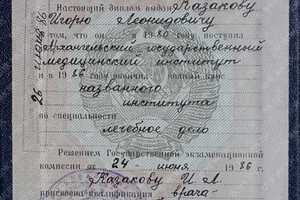 Настоящий диплом выдан Казакову
Игорю Леонидовичу
в том, что он в 1980 году поступил
в Архангельский государственный
медицинский институт
и в 1986 году окончил полный курс
названного
института
по специальности
лечебное дело
Решением Государственной экзаменационной
комиссии от 24 июня 1986 г.
Казакову И. Л.
присвоена квалификация врача-